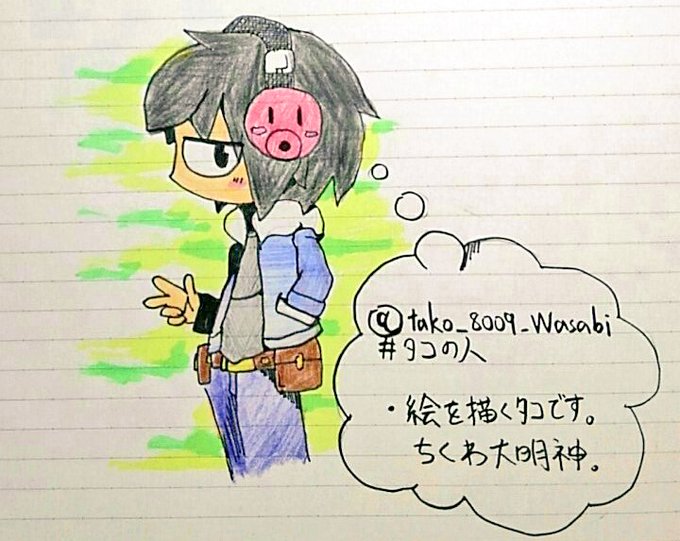 @tako_8009_Wasabi
#タコの人
・絵を描くタコです。
ちくわ大明神。